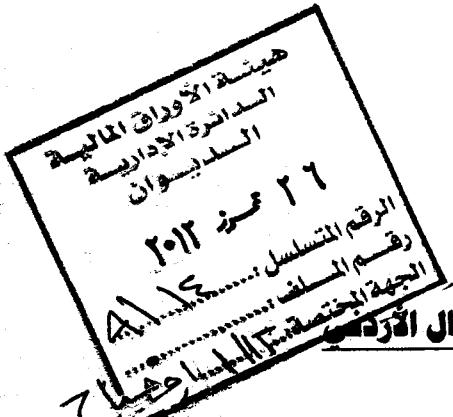 هيئة الأوراق المالية
الدائرة الإدارية
الديوان
٢٦ تموز ٢٠١٢
الرقم المتسلسل:
رقم الملف:
الجهة المختصة:
ال الأردني